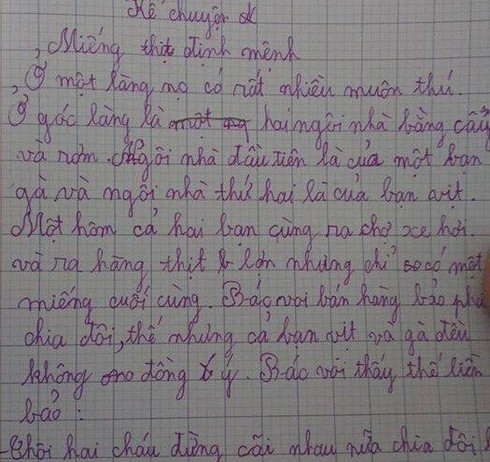 Kể chuyện
, Miếng thịt định mệnh
, Ở một làng nọ có rất nhiều muôn thú.
Ở góc làng là một ng hai ngôi nhà bằng cây
và rơm. Ngôi nhà đầu tiên là của một bạn
gà và ngôi nhà thứ hai là của bạn vịt.
Một hôm cả hai bạn cùng ra chợ xe hơi.
và ra hàng thịt lợn nhưng chỉ có một
miếng cuối cùng. Bác voi bán hàng bảo phả
chia đôi, thế nhưng cả bạn vịt và gà đều
không đồng ý. Bác voi thấy thế liền
bảo :
- Thôi hai cháu đừng cãi nhau nữa chia đôi